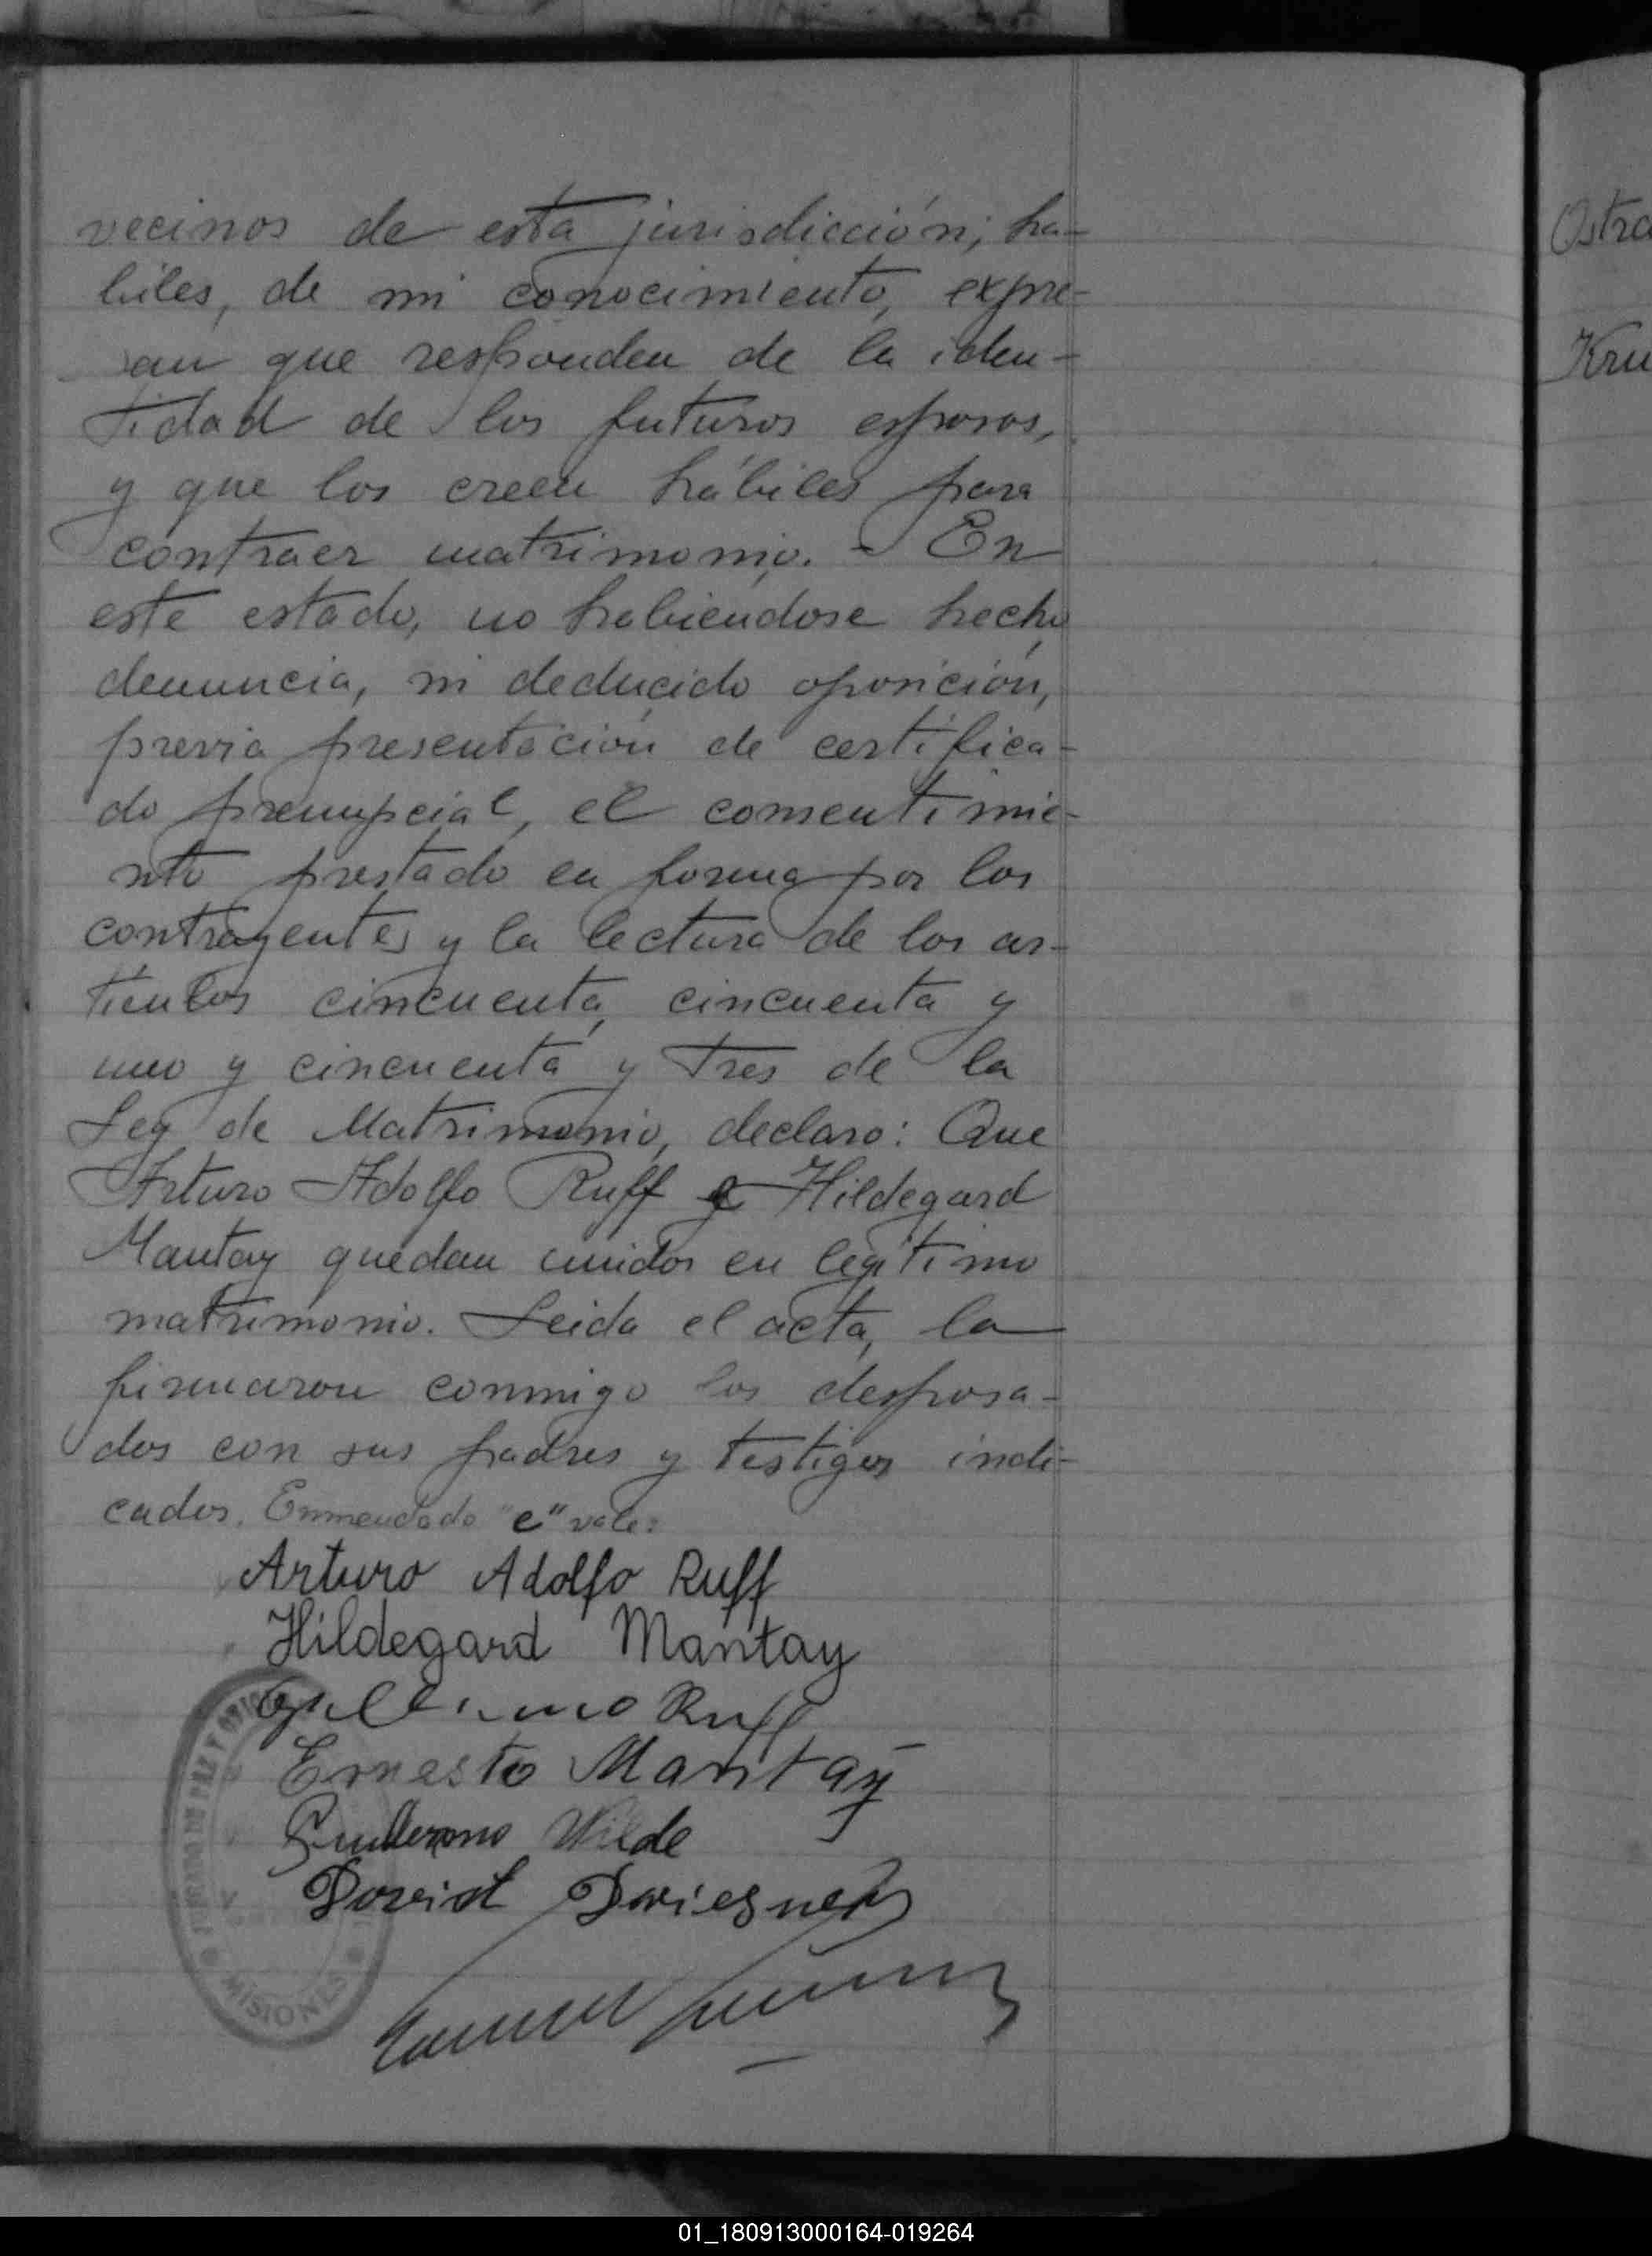 vecinos de esta jurisdicción; ha-
biles, de mi conocimiento, expre-
san que responden de la iden-
tidad de los futuros esposos,
y que los creen hábiles para
contraer matrimonio. - En
este estado, no habiendose hecho
denuncia, ni deducido oposición,
previa presentación de certifica-
do prenupcial, el consentimie-
nto prestado en forma por los
contrayentes y la lectura de los ar-
tículos cincuenta, cincuenta y
uno y cincuenta y tres de la
Ley de Matrimonio, declaro: Que
Arturo Adolfo Ruff e Hildegard
Mantay quedan unidos en legítimo
matrimonio. Leida el acta, la
firmaron conmigo los desposa-
dos con sus padres y testigos indi-
cados. Enmendado "e" vale:
Arturo Adolfo Ruff
Hildegard Mantay
Guillermo Ruff
Ernesto Mantay
Guillermo Wilde
JUZGADO DE PAZ Y
MISIONES
Ostra
Kru
01_180913000164-019264